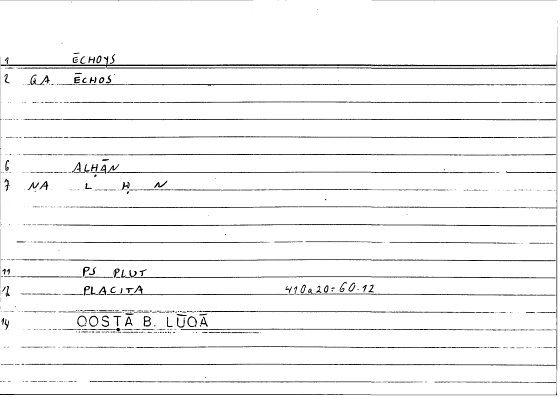 1 ĒCHOYS
2 GA ĒCHOS
6 ALḤĀN
7 NA L Ḥ N
11 PS PLUT
12 PLACITA 410a20-60.12
14 QOSṬĀ B. LŪQĀ